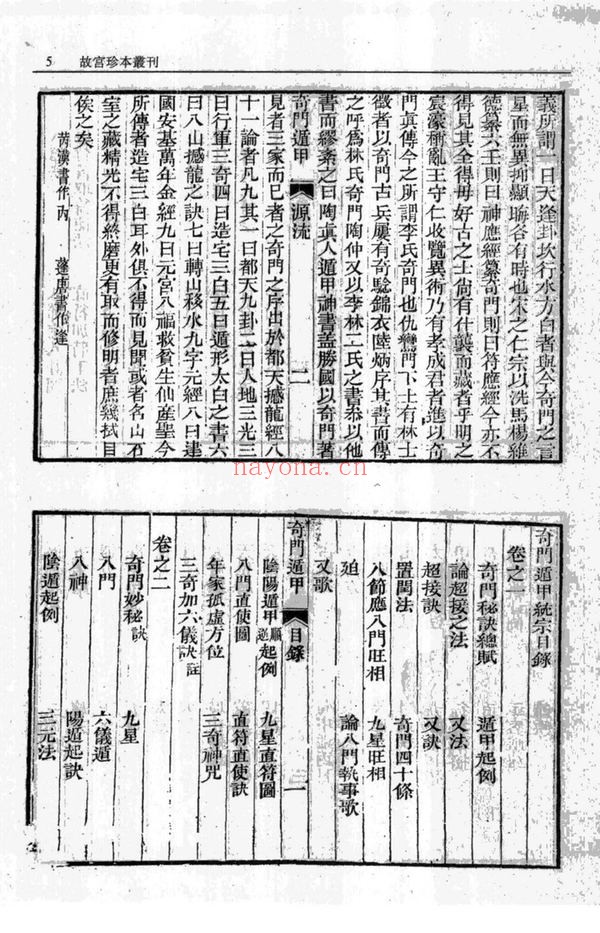 5 故宮珍本叢刊
義所謂一曰天逢卦坎行水方白者與今奇門之言
星而無異抑顯晦各有時也宋之仁宗以洗馬楊維
德纂六壬則曰神應經纂奇門則曰符應經今亦不
得見其全得毋好古之士尚有什襲而藏者乎明之
宸濠稱亂王守仁收覽異術乃有孝成君者進以奇
門真傳今之所謂李氏奇門也仇鸞門下上有林士
徵者以奇門古兵屢有奇驗錦衣陸炳序其書而傳
之呼爲林氏奇門陶仲又以李林二氏之書叅以他
書而繆紊之曰陶真人遁甲神書葢勝國以奇門著
奇門遁甲 源流 二
見者三家而已耳之奇門之序出於都天撼龍經八
十一論者凡九其一曰都天九卦二曰人地三光三
曰行軍三奇四曰造宅三白五曰遁形太白之書六
曰八山撼龍之訣七曰轉山移水九字元經八曰建
國安基萬年金經九曰元宮八福救貧生仙產聖今
所傳者造宅三白耳外俱不得而見聞或者名山石
室之藏精光不得終磨更有取而修明者庶幾拭目
俟之矣
芮漢書作內 蓬唐書作逢
奇門遁甲統宗目錄
卷之一
奇門秘訣總賦 遁甲起例
論超接之法 又法
超接訣 又訣
置閏法 奇門四十條
八節應八門旺相 九星旺相
迫 論八門執事歌
又歌
奇門遁甲 目錄 一
陰陽遁甲順逆起例 九星直符圖
八門直使圖 直符直使訣
年家孤虛方位 三奇神咒
三奇加六儀訣註
卷之二
奇門妙秘訣 九星
八門 六儀遁
八神 陽遁起訣
陰遁起例 三元法
nayona.cn